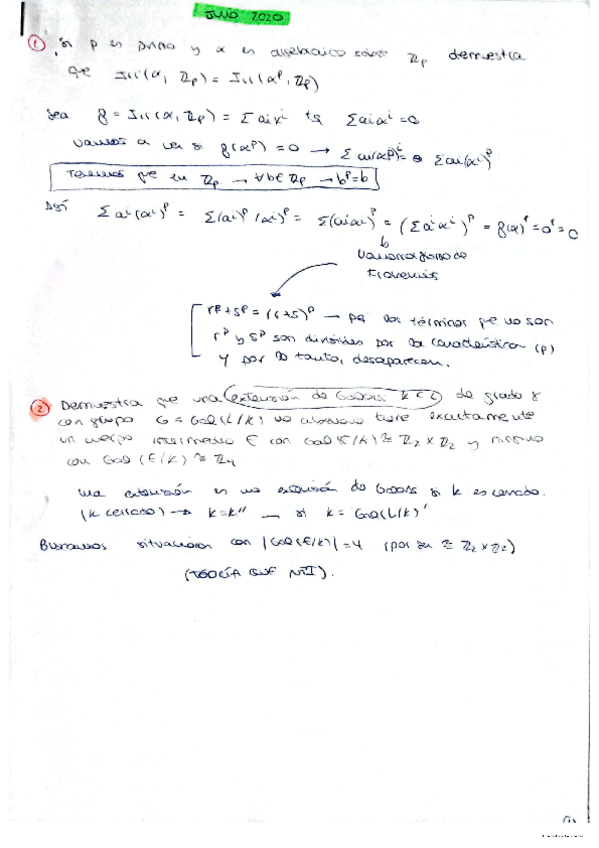 JULIO 2020
① Si p es primo y α es algebraico sobre ℤp demuestra
que Irr(α, ℤp) = Irr(α^p, ℤp)
Sea g = Irr(α, ℤp) = Σaixⁱ tq Σaiαⁱ = 0
Vamos a ver si g(α^p) = 0 → Σai(α^p)ⁱ = Σai(αⁱ)^p
Tenemos que en ℤp → ∀b∈ℤp → b^p = b
Así Σai(αⁱ)^p = Σ(ai)^p(αⁱ)^p = Σ(aiαⁱ)^p = (Σaiαⁱ)^p = g(α)^p = 0^p = 0
Frobenius
r^p + s^p = (r+s)^p → pq los términos que no son
r^p y s^p son divisibles por la característica (p)
y por lo tanto, desaparecen.
② Demuestra que una extensión de Galois K ⊂ L de grado 8
con grupo G = Gal(L/K) no abeliano tiene exactamente
un cuerpo intermedio E con Gal(E/K) ≅ ℤ2 × ℤ2 y ninguno
con Gal(E/K) ≅ ℤ4
Una extensión es una extensión de Galois si K es cerrado.
(K cerrado) → K = K'' → si K = Gal(L/K)'
Buscamos situaciones con |Gal(E/K)| = 4 (por ser ≅ ℤ2 × ℤ2)